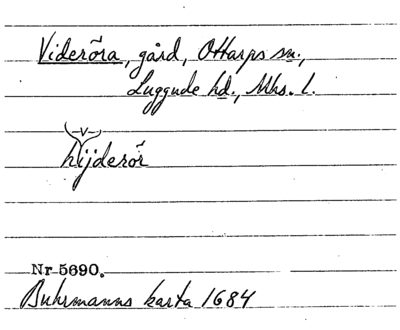 Videröra, gård, Ottarps sn.,
Luggude hd., Mhs. l.
(-v-)
hijderör
Nr 5690.
Buhrmanns karta 1684